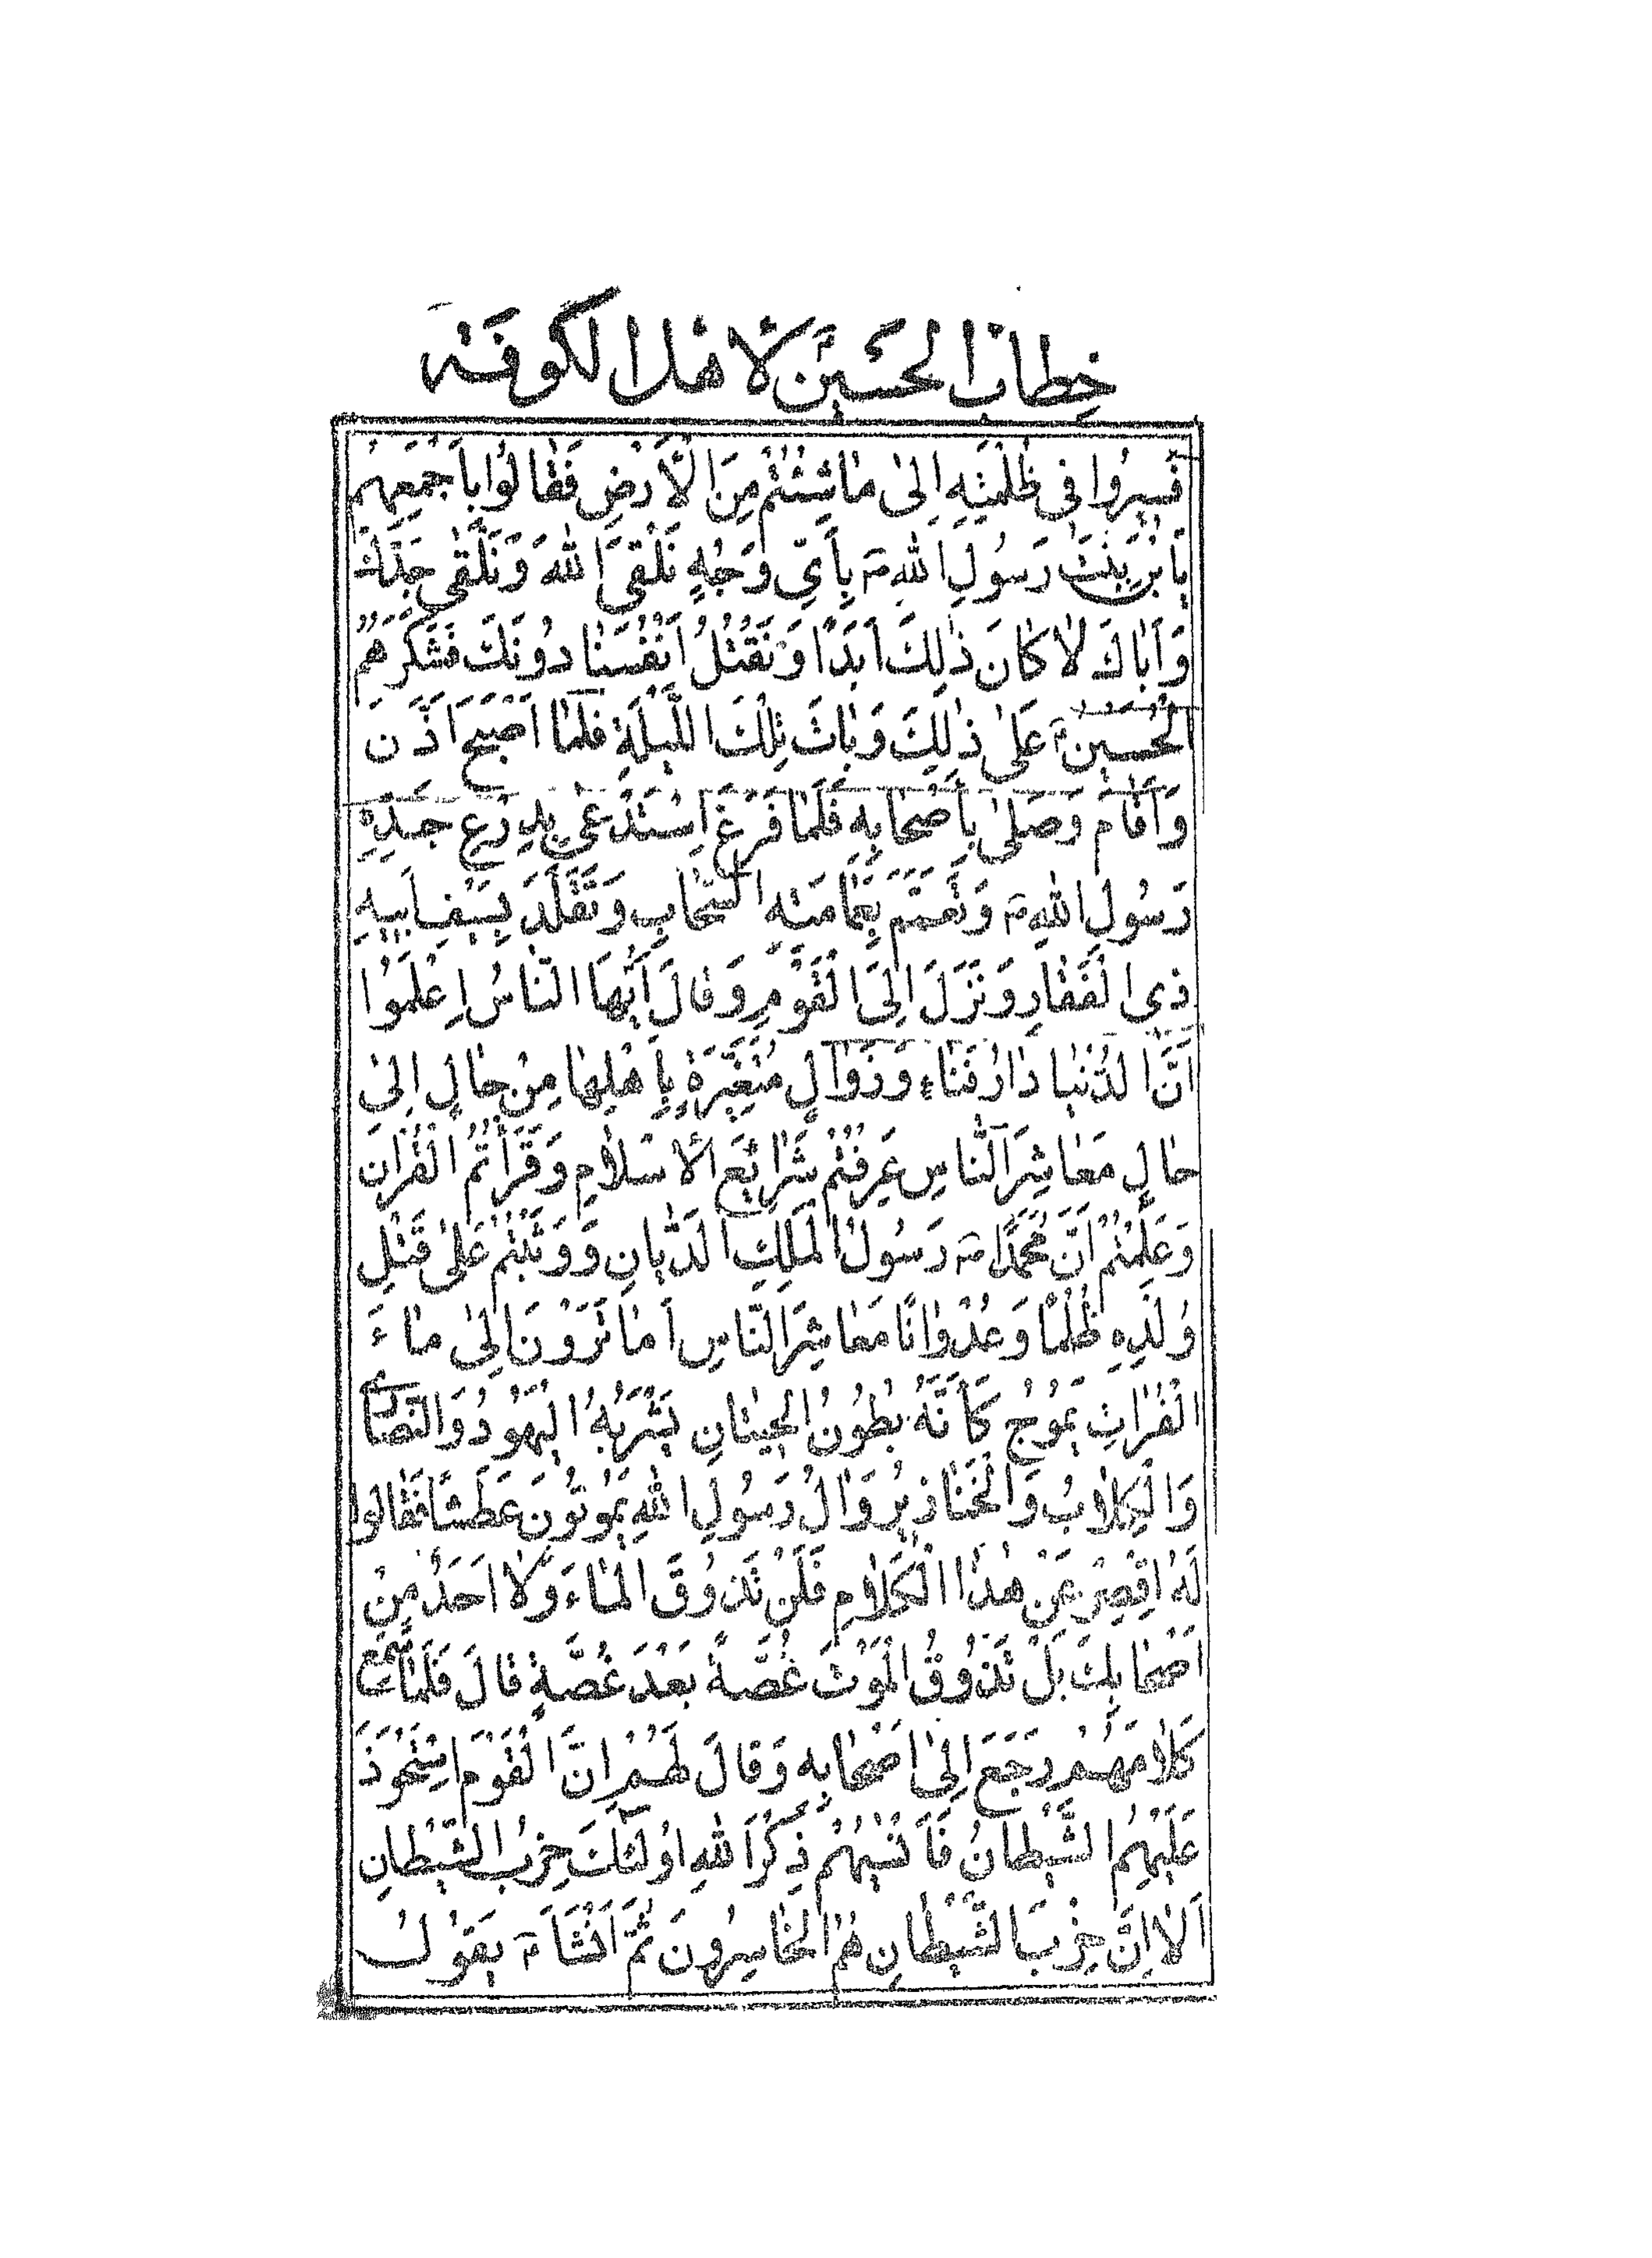 خِطابُ الحُسَيْنِ لِاَهْلِ الْكُوفَةِ
فَسِيرُوا فِى ظُلْمَتِهِ اِلىٰ مٰا شِئْتُمْ مِنَ الْاَرْضِ فَقٰالُوا بِاَجْمَعِهِمْ
يَا بْنَ بِنْتِ رَسُولِ اللهِ ص بِاَىِّ وَجْهٍ نَلْقَى اللهَ وَنَلْقٰى جَدَّكَ
وَاَبٰاكَ لٰا كٰانَ ذٰلِكَ اَبَدًا وَنَقْتُلُ اَنْفُسَنٰا دُونَكَ فَشَكَرَهُمُ
الْحُسَيْنُ ع عَلىٰ ذٰلِكَ وَبٰاتَ تِلْكَ اللَّيْلَةِ فَلَمّٰا اَصْبَحَ اَذَّنَ
وَاَقٰامَ وَصَلّىٰ بِاَصْحٰابِهِ فَلَمّٰا فَرَغَ اِسْتَدْعىٰ بِدِرْعِ جَدِّهِ
رَسُولِ اللهِ ص وَتَعَمَّمَ بِعِمٰامَتِهِ السَّحٰابِ وَتَقَلَّدَ بِسَيْفِ اَبِيهِ
ذِى الْفَقٰارِ وَنَزَلَ اِلَى الْقَوْمِ وَقٰالَ اَيُّهَا النّٰاسُ اِعْلَمُوا
اَنَّ الدُّنْيٰا دٰارُ فَنٰاءٍ وَزَوٰالٍ مُتَغَيِّرَةٌ بِاَهْلِهٰا مِنْ حٰالٍ اِلىٰ
حٰالٍ مَعٰاشِرَ النّٰاسِ عَرَفْتُمْ شَرٰايِعَ الْاِسْلٰامِ وَقَرَأْتُمُ الْقُرْاٰنَ
وَعَلِمْتُمْ اَنَّ مُحَمَّدًا ص رَسُولُ الْمَلِكِ الدَّيّٰانِ وَوَثَبْتُمْ عَلىٰ قَتْلِ
وُلْدِهِ ظُلْمًا وَعُدْوٰانًا مَعٰاشِرَ النّٰاسِ اَمٰا تَرَوْنَ اِلىٰ مٰاءَ
الْفُرٰاتِ يَمُوجُ كَاَنَّهُ بُطُونُ الْحِيتٰانِ يَشْرَبُهُ الْيَهُودُ وَالنَّصٰارىٰ
وَالْكِلٰابُ وَالْخَنٰازِيرُ وَاٰلُ رَسُولِ اللهِ يَمُوتُونَ عَطَشًا فَقٰالُوا
لَهُ اِقْصِرْ عَنْ هٰذَا الْكَلٰامِ فَلَنْ تَذُوقَ الْمٰاءَ وَلٰا اَحَدٌ مِنْ
اَصْحٰابِكَ بَلْ تَذُوقُ الْمَوْتَ غُصَّةً بَعْدَ غُصَّةٍ قٰالَ فَلَمّٰا سَمِعَ
كَلٰامَهُمْ رَجَعَ اِلىٰ اَصْحٰابِهِ وَقٰالَ لَهُمْ اِنَّ الْقَوْمَ اسْتَحْوَذَ
عَلَيْهِمُ الشَّيْطٰانُ فَاَنْسٰيهُمْ ذِكْرَ اللهِ اُولٰئِكَ حِزْبُ الشَّيْطٰانِ
اَلٰا اِنَّ حِزْبَ الشَّيْطٰانِ هُمُ الْخٰاسِرُونَ ثُمَّ اَنْشَأَ ع يَقُولُ